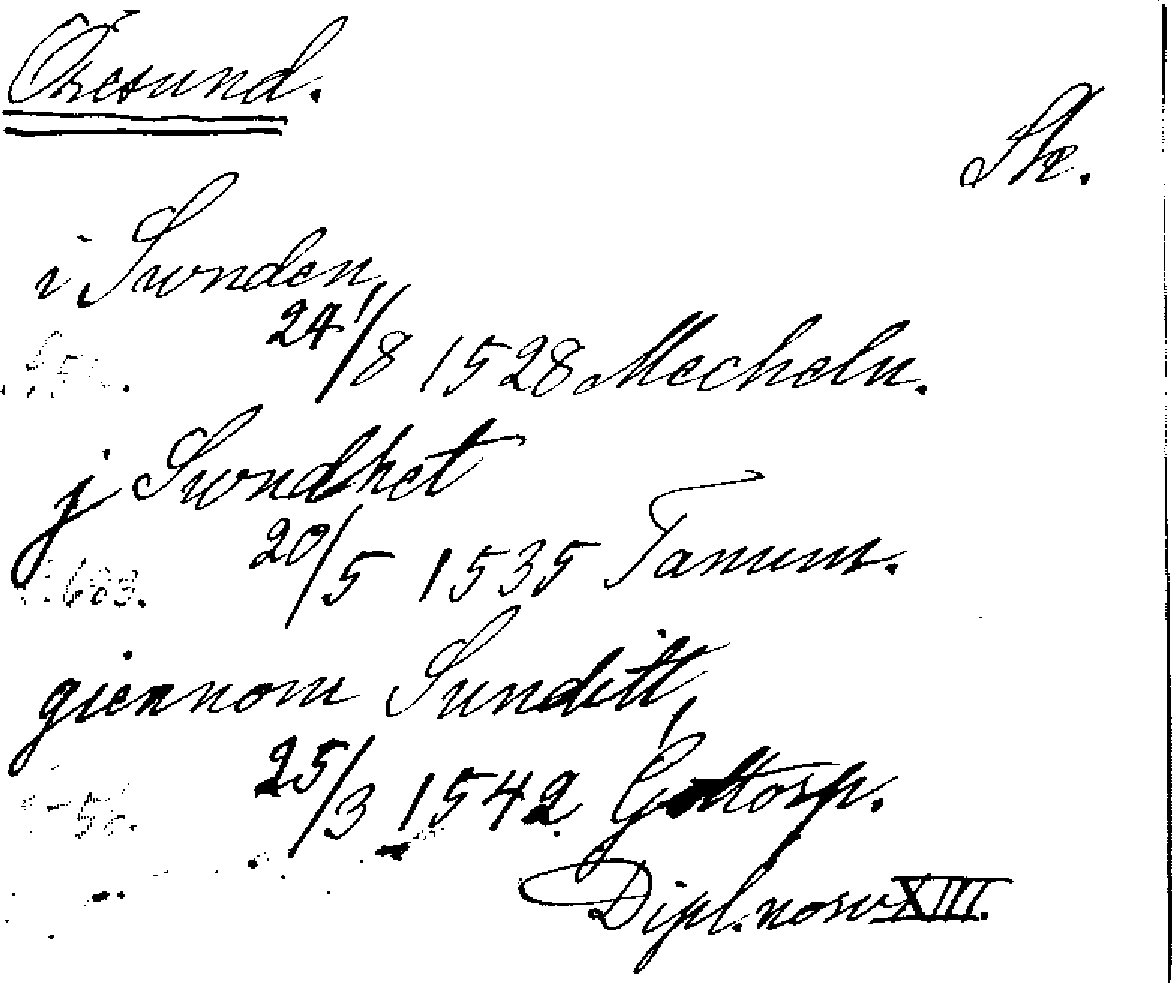 Öresund.
Sk.
i Swnden,
24/8 1528 Mecheln.
j Swndhet
20/5 1535 Tanum.
: 683.
giennom Sunditt,
25/3 1542 Gottorp.
Dipl. norv XIII.